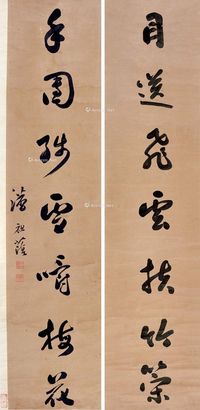 目送飛雲扶竹策
手團殘雪嚼梅花
潘祖蔭